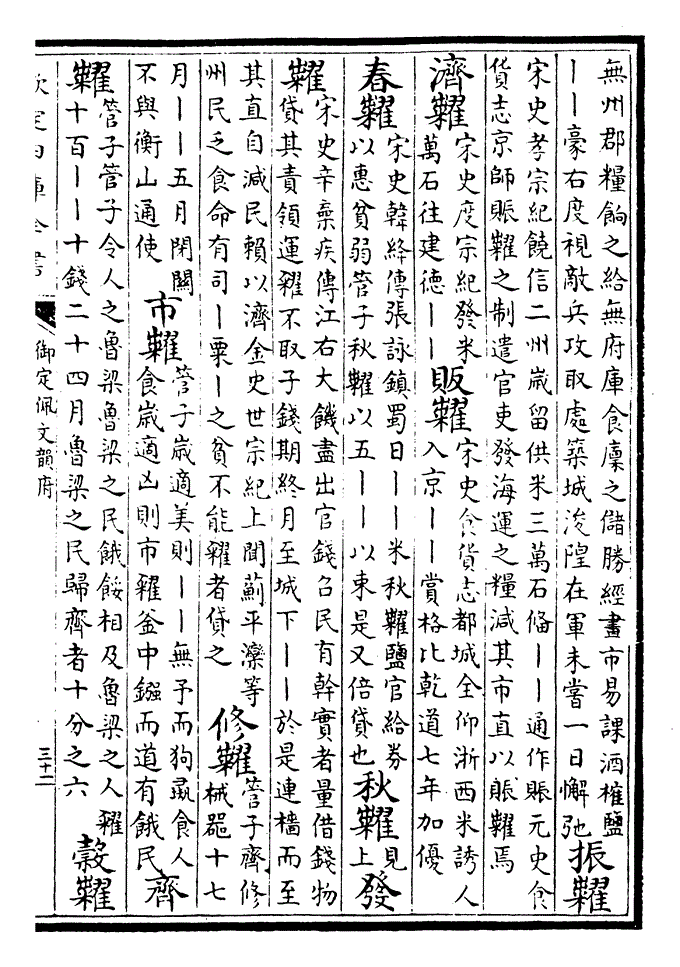 無州郡糧餉之給無府庫食廩之儲勝經畫市易課酒榷鹽
丨丨豪右度視敵兵攻取處築城浚隍在軍未嘗一日懈弛
振糶
宋史孝宗紀饒信二州嵗留供米三萬石偹丨丨通作賑元史食
貨志京師賑糶之制遣官吏發海運之糧減其市直以賑糶焉
濟糶
宋史度宗紀發米
萬石往建德丨丨
販糶
宋史食貨志都城全仰浙西米誘人
入京丨丨賞格比乾道七年加優
春糶
宋史韓絳傳張詠鎮蜀日丨丨米秋糶鹽官給券
以惠貧弱管子秋糶以五丨丨以束是又倍貸也
秋糶
見
上
發
糶
宋史辛棄疾傳江右大饑盡出官錢召民有幹實者量借錢物
貸其責領運糴不取子錢期終月至城下丨丨於是連檣而至
其直自減民賴以濟金史世宗紀上聞薊平灤等
州民乏食命有司丨粟丨之貧不能糴者貸之
修糶
管子齊修
械噐十七
月丨丨五月閉關
不與衡山通使
市糶
管子嵗適美則丨丨無予而狗彘食人
食嵗適凶則市糴釜中鏹而道有餓民
齊
糶
管子管子令人之魯梁魯梁之民餓餒相及魯梁之人糴
十百丨丨十錢二十四月魯梁之民歸齊者十分之六
穀糶
欽定四庫全書
御定佩文韻府
三十二